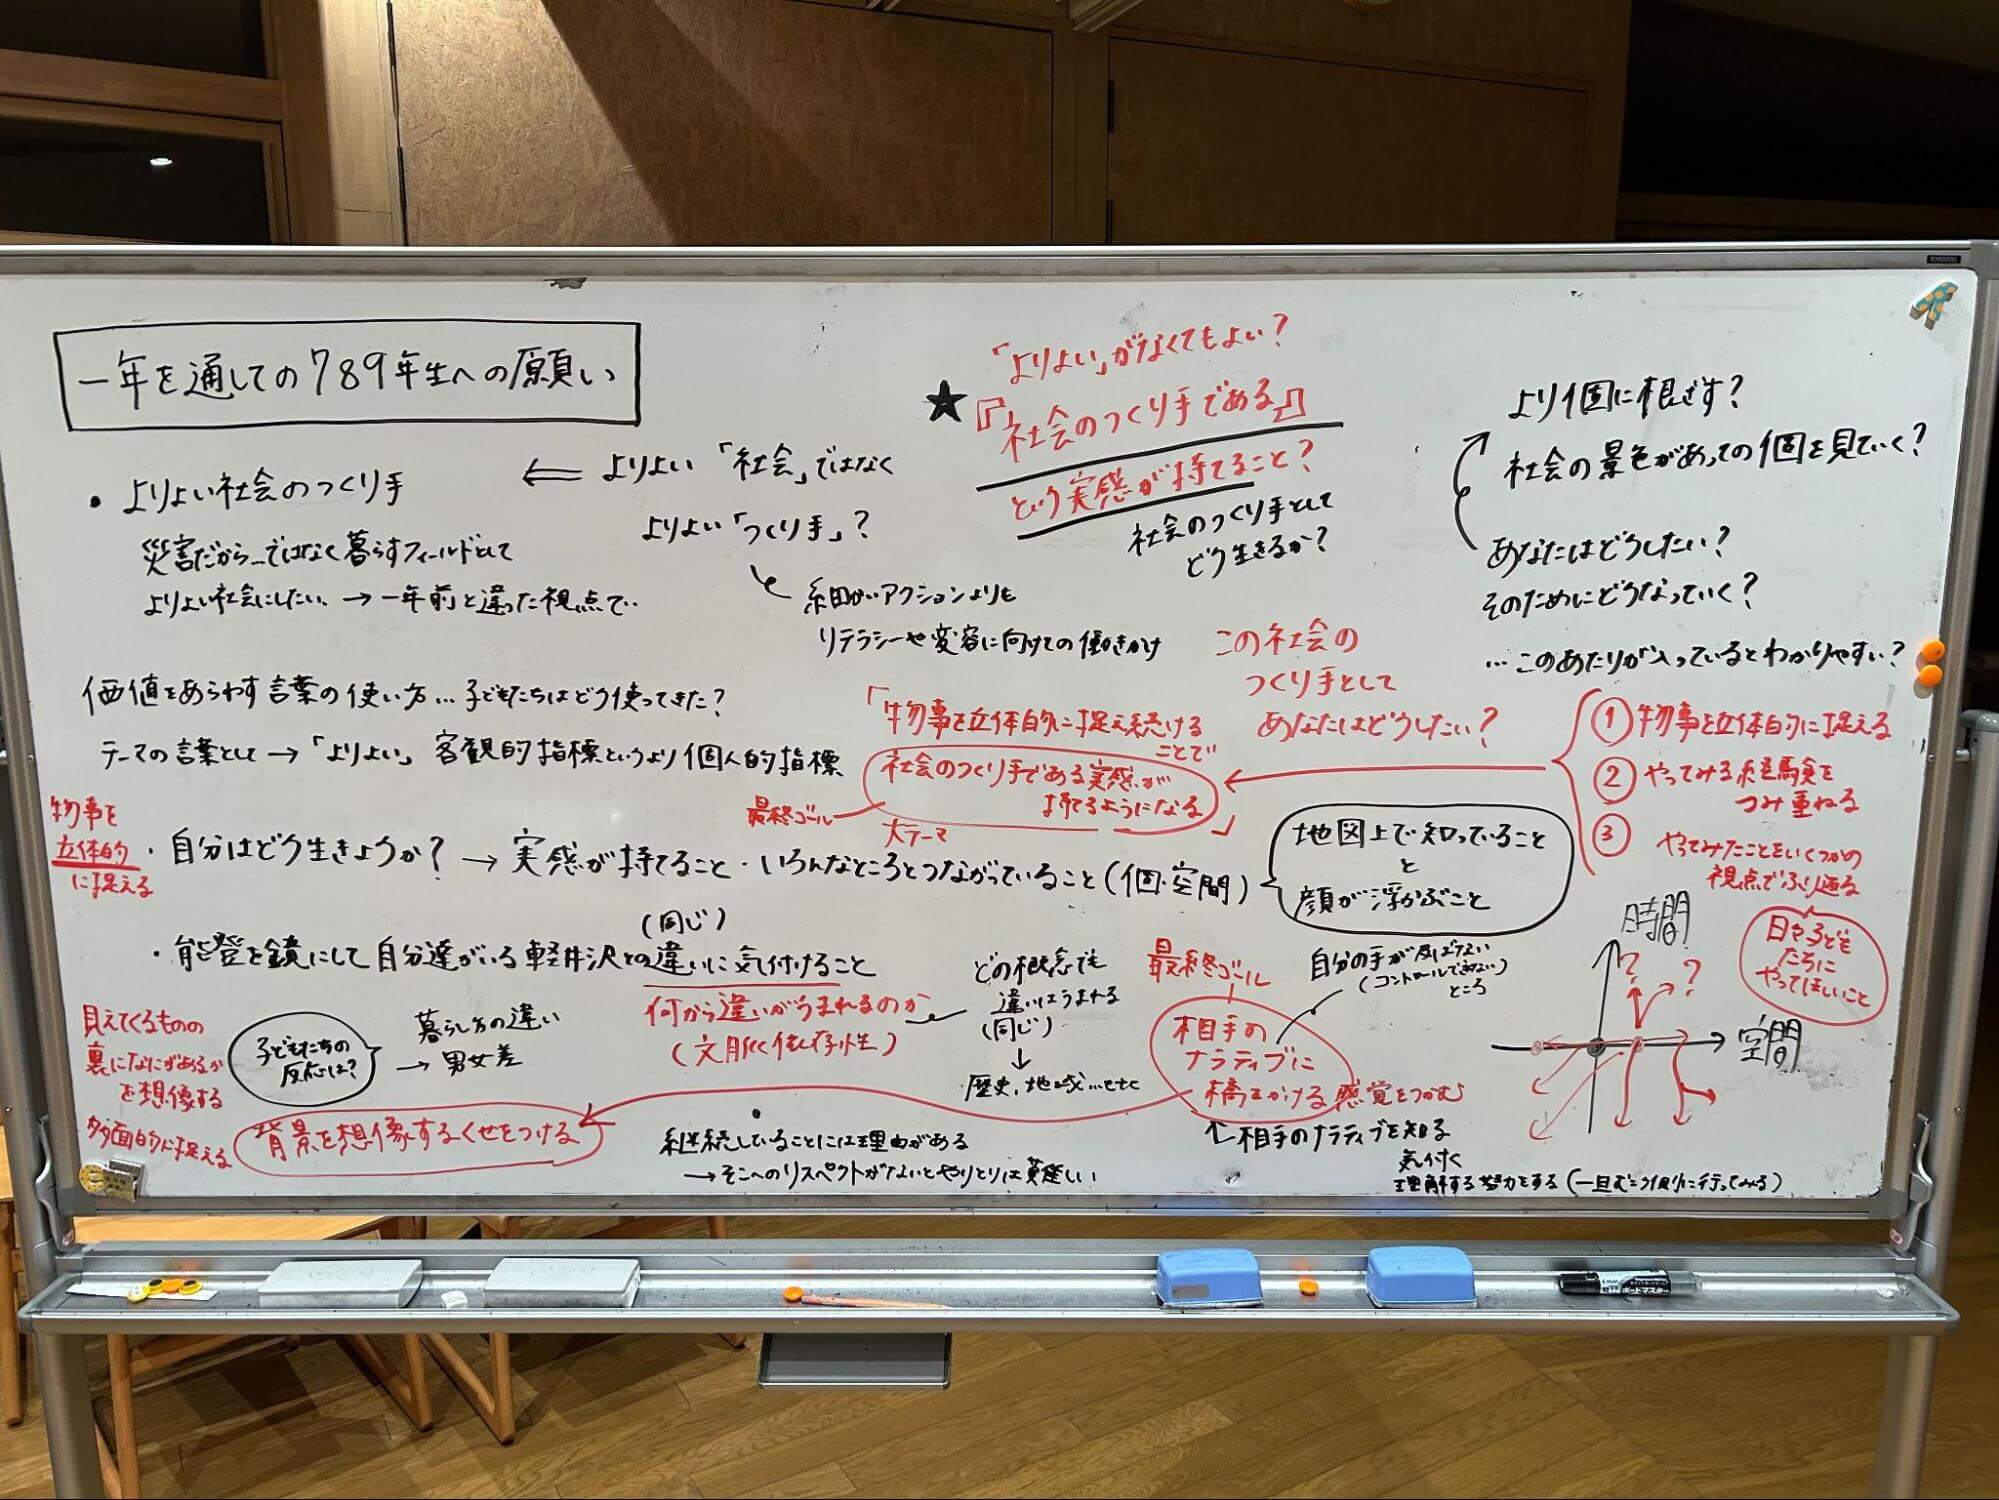 一年を通しての789年生への願い
・よりよい社会のつくり手
⇐ よりよい「社会」ではなく
よりよい「つくり手」?
災害だから…ではなく暮らすフィールドとして
よりよい社会にしたい、→一年前と違った視点で…
細かいアクションよりも
リテラシーや変容に向けての働きかけ
「よりよい」がなくてもよい?
★『社会のつくり手である』
という実感が持てること?
社会のつくり手として
どう生きるか?
より個に根ざす?
社会の景色があっての個を見ていく?
あなたはどうしたい?
そのためにどうなっていく?
…このあたりが入っているとわかりやすい?
価値をあらわす言葉の使い方…子どもたちはどう使ってきた?
テーマの言葉として→「よりよい」客観的指標というより個人的指標
この社会の
つくり手として
あなたはどうしたい?
「物事を立体的に捉え続ける
ことで
社会のつくり手である実感が
持てるようになる」
最終ゴール
大テーマ
① 物事を立体的に捉える
② やってみる経験を
つみ重ねる
③ やってみたことをいくつかの
視点でふり返る
日々子ども
たちに
やってほしいこと
物事を
立体的
に捉える
・自分はどう生きようか?→実感が持てること・いろんなところとつながっていること(個・空間)
地図上で知っていること
と
顔が浮かぶこと
(同じ)
・能登を鏡にして自分達がいる軽井沢との違いに気付けること
何から違いがうまれるのか
(文脈依存性)
どの概念でも
違いはうまれる
(同じ)
↓
歴史,地域…etc
見えてくるものの
裏になにがあるか
を想像する
多面的に捉える
子どもたちの
反応は?
暮らし方の違い
→男女差
背景を想像するくせをつける
・継続していることには理由がある
→そこへのリスペクトがないとやりとりは難しい
最終ゴール
相手の
ナラティブに
橋をかける感覚をつかむ
自分の手が及ばない
(コントロールできない)
ところ
↑相手のナラティブを知る
気付く
理解する努力をする(一旦むこう側に行ってみる)
時間
空間
? ?